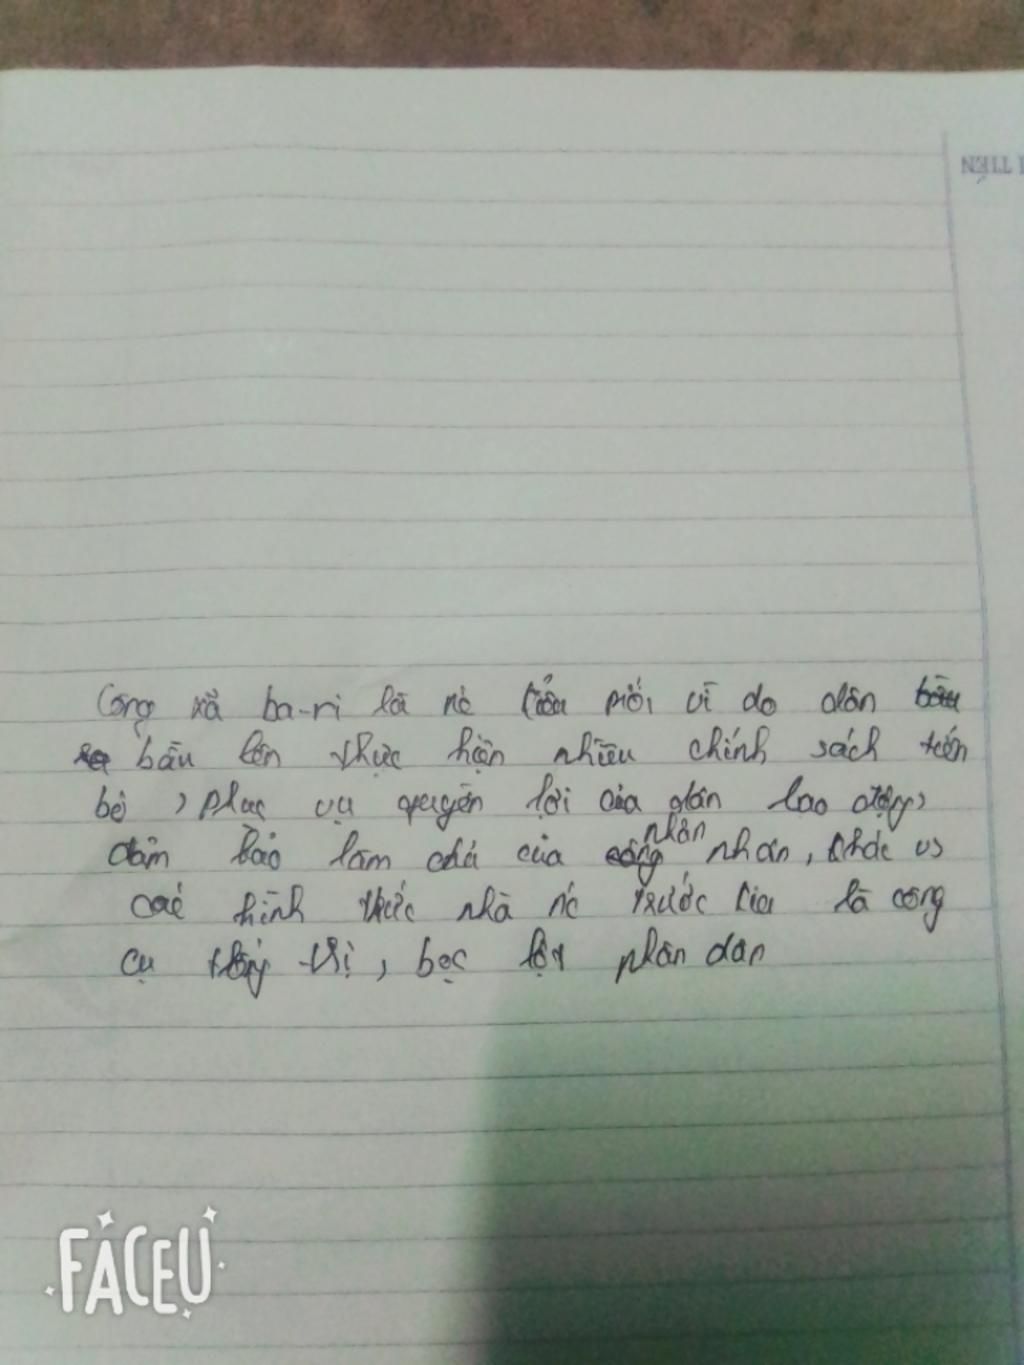 TIẾN
Công xã ba-ri là nc kiểu mới vì do dân bầu
bầu lên thực hiện nhiều chính sách tiến
bộ, phục vụ quyền lợi của dân lao động,
nhân
đảm bảo làm chủ của công nhân, khác vs
các hình thức nhà nc trước kia là công
cụ thống trị, bọc lột nhân dân
FACEU